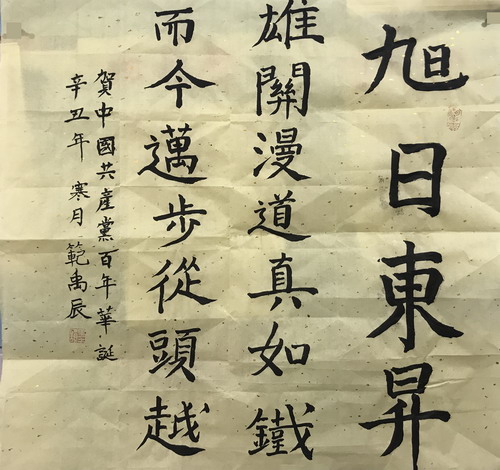 旭日東昇
雄關漫道真如鐵
而今邁步從頭越
賀中國共產黨百年華誕
辛丑年 寒月 範禹辰